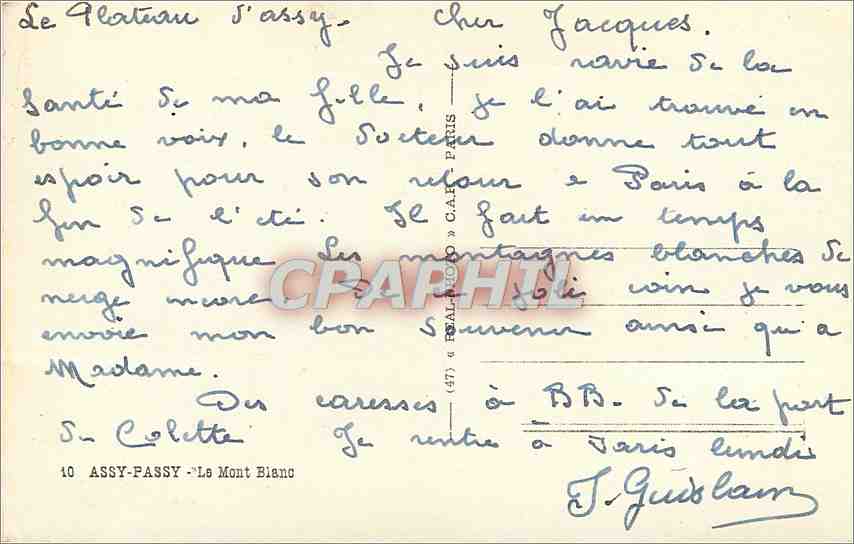 Le Plateau d'assy. Cher Jacques.
Je suis ravie de la
Santé de ma fille, je l'ai trouvé en
bonne voix, le docteur donne tout
espoir pour son retour a Paris à la
fin de l'été. Il fait un temps
magnifique les montagnes blanches de
neige encore. De ce joli coin je vous
envoie mon bon souvenir ainsi qu'a
Madame.
Des caresses à BB. de la part
de Colette Je rentre à Paris lundi
J. Guislain
10 ASSY-PASSY - Le Mont Blanc
(47) « REAL-PHOTO » C.A.P. - PARIS
CPARPHIL